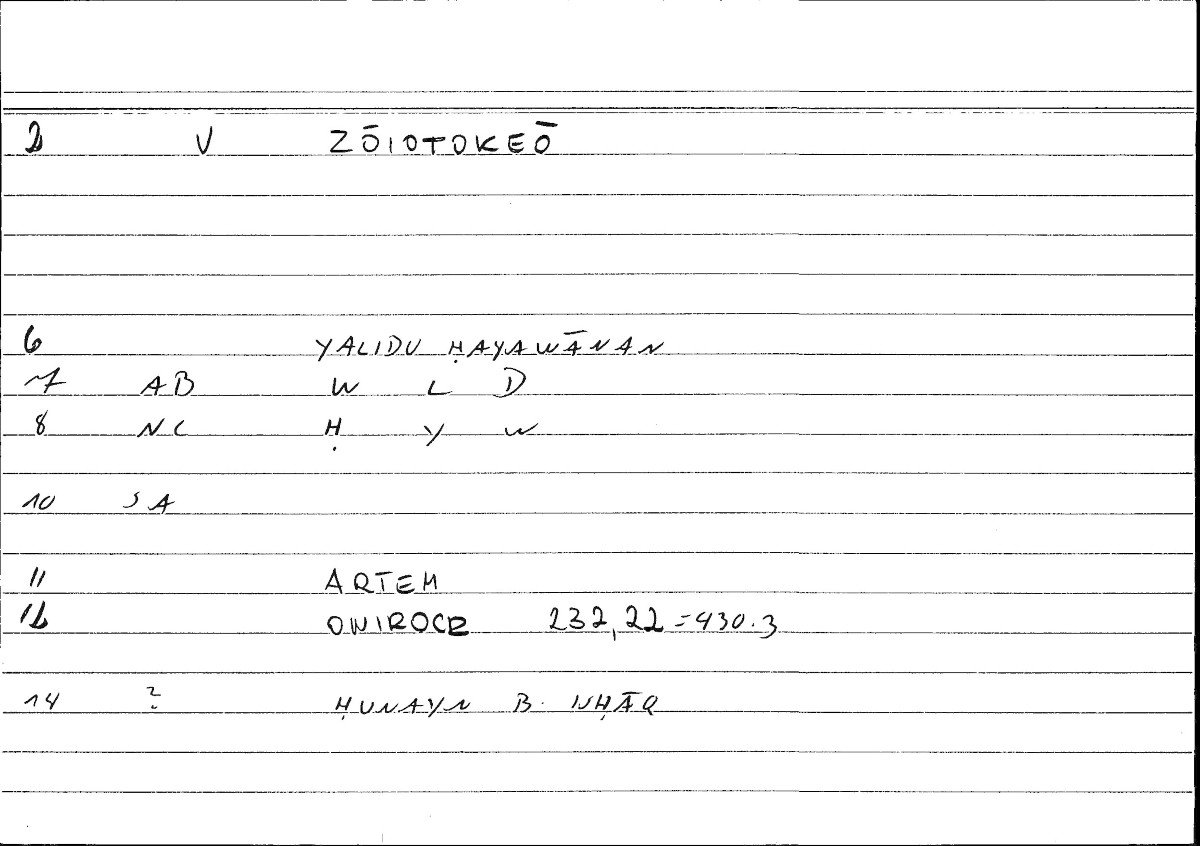 2 V ZŌIOTOKEŌ
6 YALIDU ḤAYAWĀNAN
7 AB W L D
8 NC Ḥ Y W
10 SA
11 ARTEM
12 ONIROCR 232,22=430.3
14 ? ḤUNAYN B. ISḤĀQ